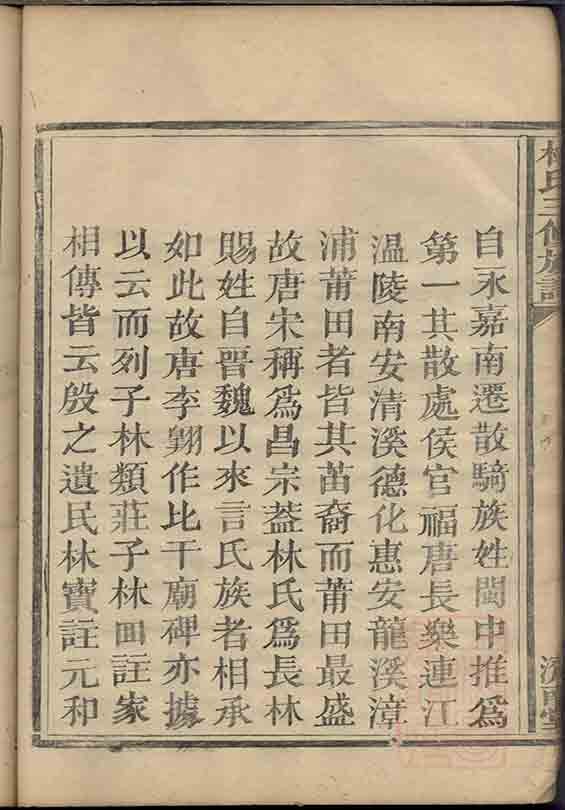 林氏三修族譜
自永嘉南遷散騎族姓閩中推爲
第一其散處侯官福唐長樂連江
温陵南安清溪德化惠安龍溪漳
浦莆田者皆其苗裔而莆田最盛
故唐宋稱爲昌宗葢林氏爲長林
賜姓自晋魏以來言氏族者相承
如此故唐李翱作比干廟碑亦據
以云而列子林類莊子林回註家
相傳皆云殷之遺民林寶註元和